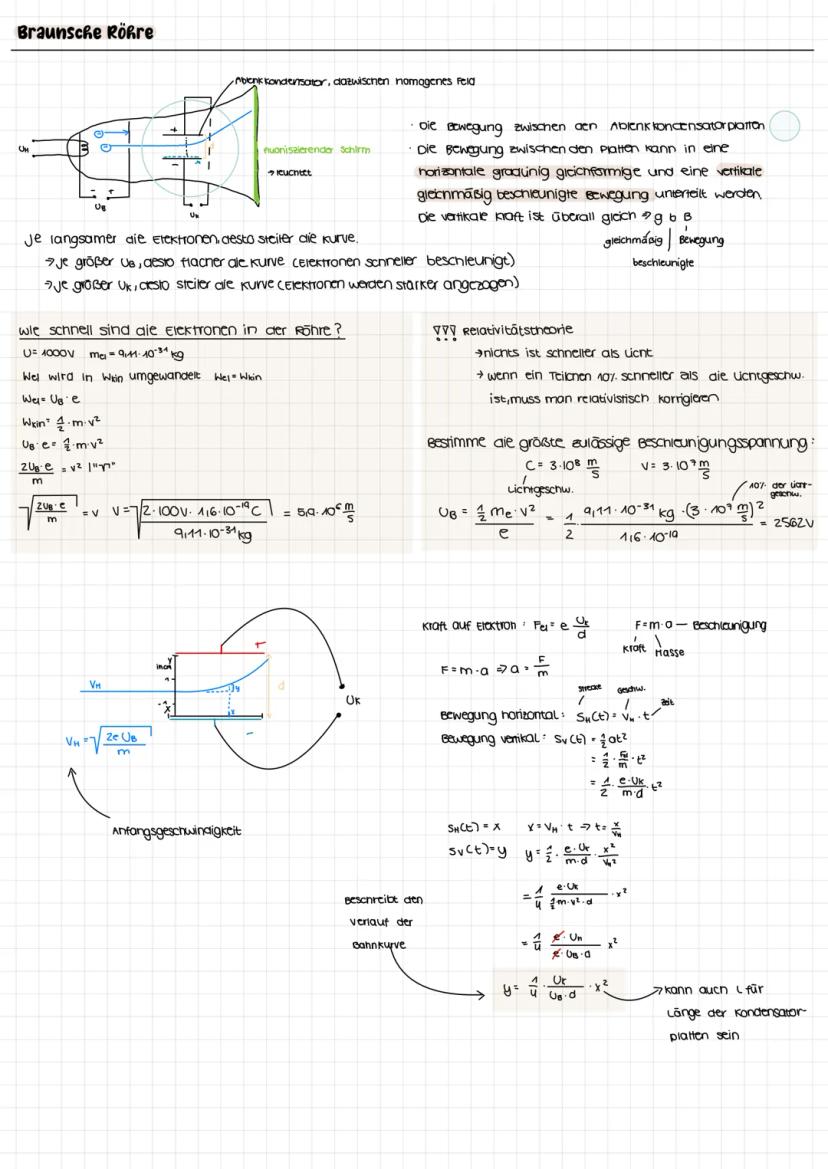 Braunsche Röhre
Ablenkkondensator, dazwischen homogenes Feld
UH
+
-
fluoriszierender Schirm
→ leuchtet
- +
UB
UK
· Die Bewegung zwischen den Ablenkkondensatorplatten
· Die Bewegung zwischen den Platten kann in eine
horizontale gradlinig gleichförmige und eine vertikale
gleichmäßig beschleunigte Bewegung unterteilt werden.
Die vertikale Kraft ist überall gleich → g b B
gleichmäßig | Bewegung
beschleunigte
Je langsamer die Elektronen, desto steiler die Kurve.
→ Je größer UB, desto flacher die Kurve (Elektronen schneller beschleunigt)
→ Je größer UK, desto steiler die Kurve (Elektronen werden stärker angezogen)
Wie schnell sind die Elektronen in der Röhre?
U = 1000V mel = 9,11·10⁻³¹ kg
Wel wird in Wkin umgewandelt Wel = Wkin
Wel = UB · e
Wkin = 1/2 · m · v²
UB · e = 1/2 · m · v²
2UB·e/m = v² |"√"
√(2UB·e/m) = v v = √(2·100V·1,6·10⁻¹⁹C / 9,11·10⁻³¹kg) = 5,9·10⁶ m/s
∇∇∇ Relativitätstheorie
→ nichts ist schneller als Licht
→ wenn ein Teilchen 10% schneller als die Lichtgeschw.
ist, muss man relativistisch korrigieren
Bestimme die größte zulässige Beschleunigungsspannung:
C = 3·10⁸ m/s V = 3·10⁷ m/s
Lichtgeschw.
10% der Lichtgeschw.
UB = 1/2 me · v² / e = 1/2 · 9,11·10⁻³¹ kg · (3·10⁷ m/s)² / 1,6·10⁻¹⁹ = 2562V
+
y
x
VH
y
x
d
-
UK
VH = √(2eUB/m)
Anfangsgeschwindigkeit
Kraft auf Elektron: Fel = e UK/d F = m·a — Beschleunigung
Kraft Masse
F = m·a ⇒ a = F/m
Strecke Geschw. Zeit
Bewegung horizontal: SH(t) = VH · t
Bewegung vertikal: SV(t) = 1/2 at²
= 1/2 · Fel/m · t²
= 1/2 · e·UK/m·d · t²
SH(t) = x x = VH · t → t = x/VH
SV(t) = y y = 1/2 · e·UK/m·d · x²/VH²
= 1/4 e·UK / 1/2 m·v²·d · x²
= 1/4 e·UK / e·UB·d x²
Beschreibt den
Verlauf der
Bahnkurve
y = 1/4 · UK/UB·d · x²
kann auch L für
Länge der Kondensator-
platten sein